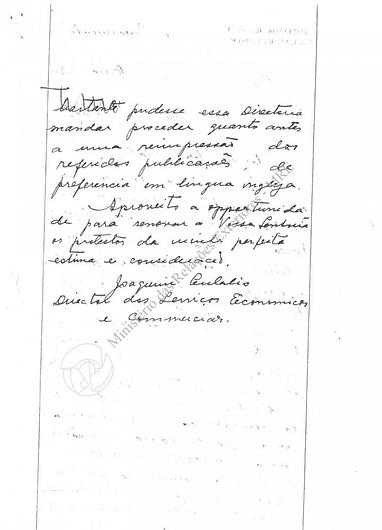 pudesse essa Directoria
mandar proceder quanto antes
a uma reimpressão das
referidas publicações, de
preferencia em lingua ingleza.
Aproveito a opportunida
de para renovar a Vossa Senhoria
os protestos da minha perfeita
estima e consideração.
Joaquim Eulalio
Director dos Serviços Economicos
e Commerciaes.
Ministério das Relações Exteriores